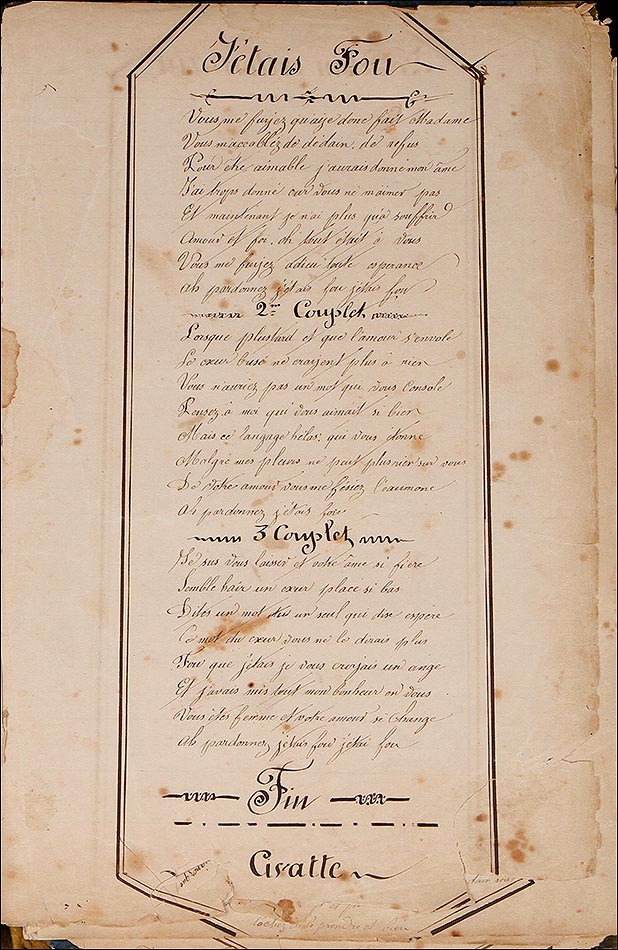 J'étais Fou
Vous me fuyez qu'aije donc fait Madame
Vous m'accablez de dédain, de refus
Pour être aimable j'aurais donné mon âme
J'ai trops donné car vous ne m'aimer pas
Et maintenant je n'ai plus qu'à souffrir
Amour et foi, oh tout était à vous
Vous me fuyez adieu toute espérance
Ah pardonnez j'étais fou j'étais fou
2me Couplet
Lorsque plustard et que l'amour s'envole
Le cœur busé ne croyent plus à rien
Vous n'auriez pas un mot qui vous console
Pensez à moi qui vous aimait si bien
Mais ce langage hélas; qui vous étonne
Malgré mes pleurs ne peut plus rien sur vous
De votre amour vous me fésiez l'eaumone
Ah pardonnez j'étois fou
3 Couplet
Je sus vous laisser et votre âme si fière
Semble haïr un cœur placé si bas
Dites un mot un seul qui dise espère
Ce mot du cœur vous ne le dirais plus
Fou que j'étais je vous croyais un ange
Et j'avais mis tout mon bonheur en vous
Vous êtes femme et votre amour se change
Ah pardonnez j'étais fou j'étai fou
Fin
Civatte